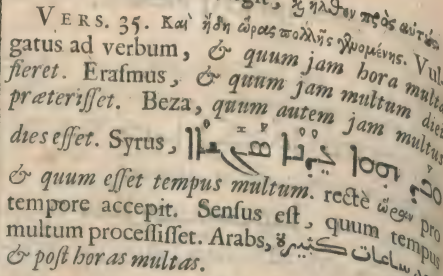 πρὸς
VERS. 35. Καὶ ἤδη ὥρας πολλῆς γινομένης. Vul-
gatus ad verbum, & quum jam hora mult
fieret. Eraſmus, & quum jam multum die
præteriſſet. Beza, quum autem jam multu
dies eſſet. Syrus,
& quum eſſet tempus multum. rectè ὥραν pro
tempore accepit. Senſus eſt, quum tempus
multum proceſſiſſet. Arabs, ساعات كثيرة
& poſt horas multas.